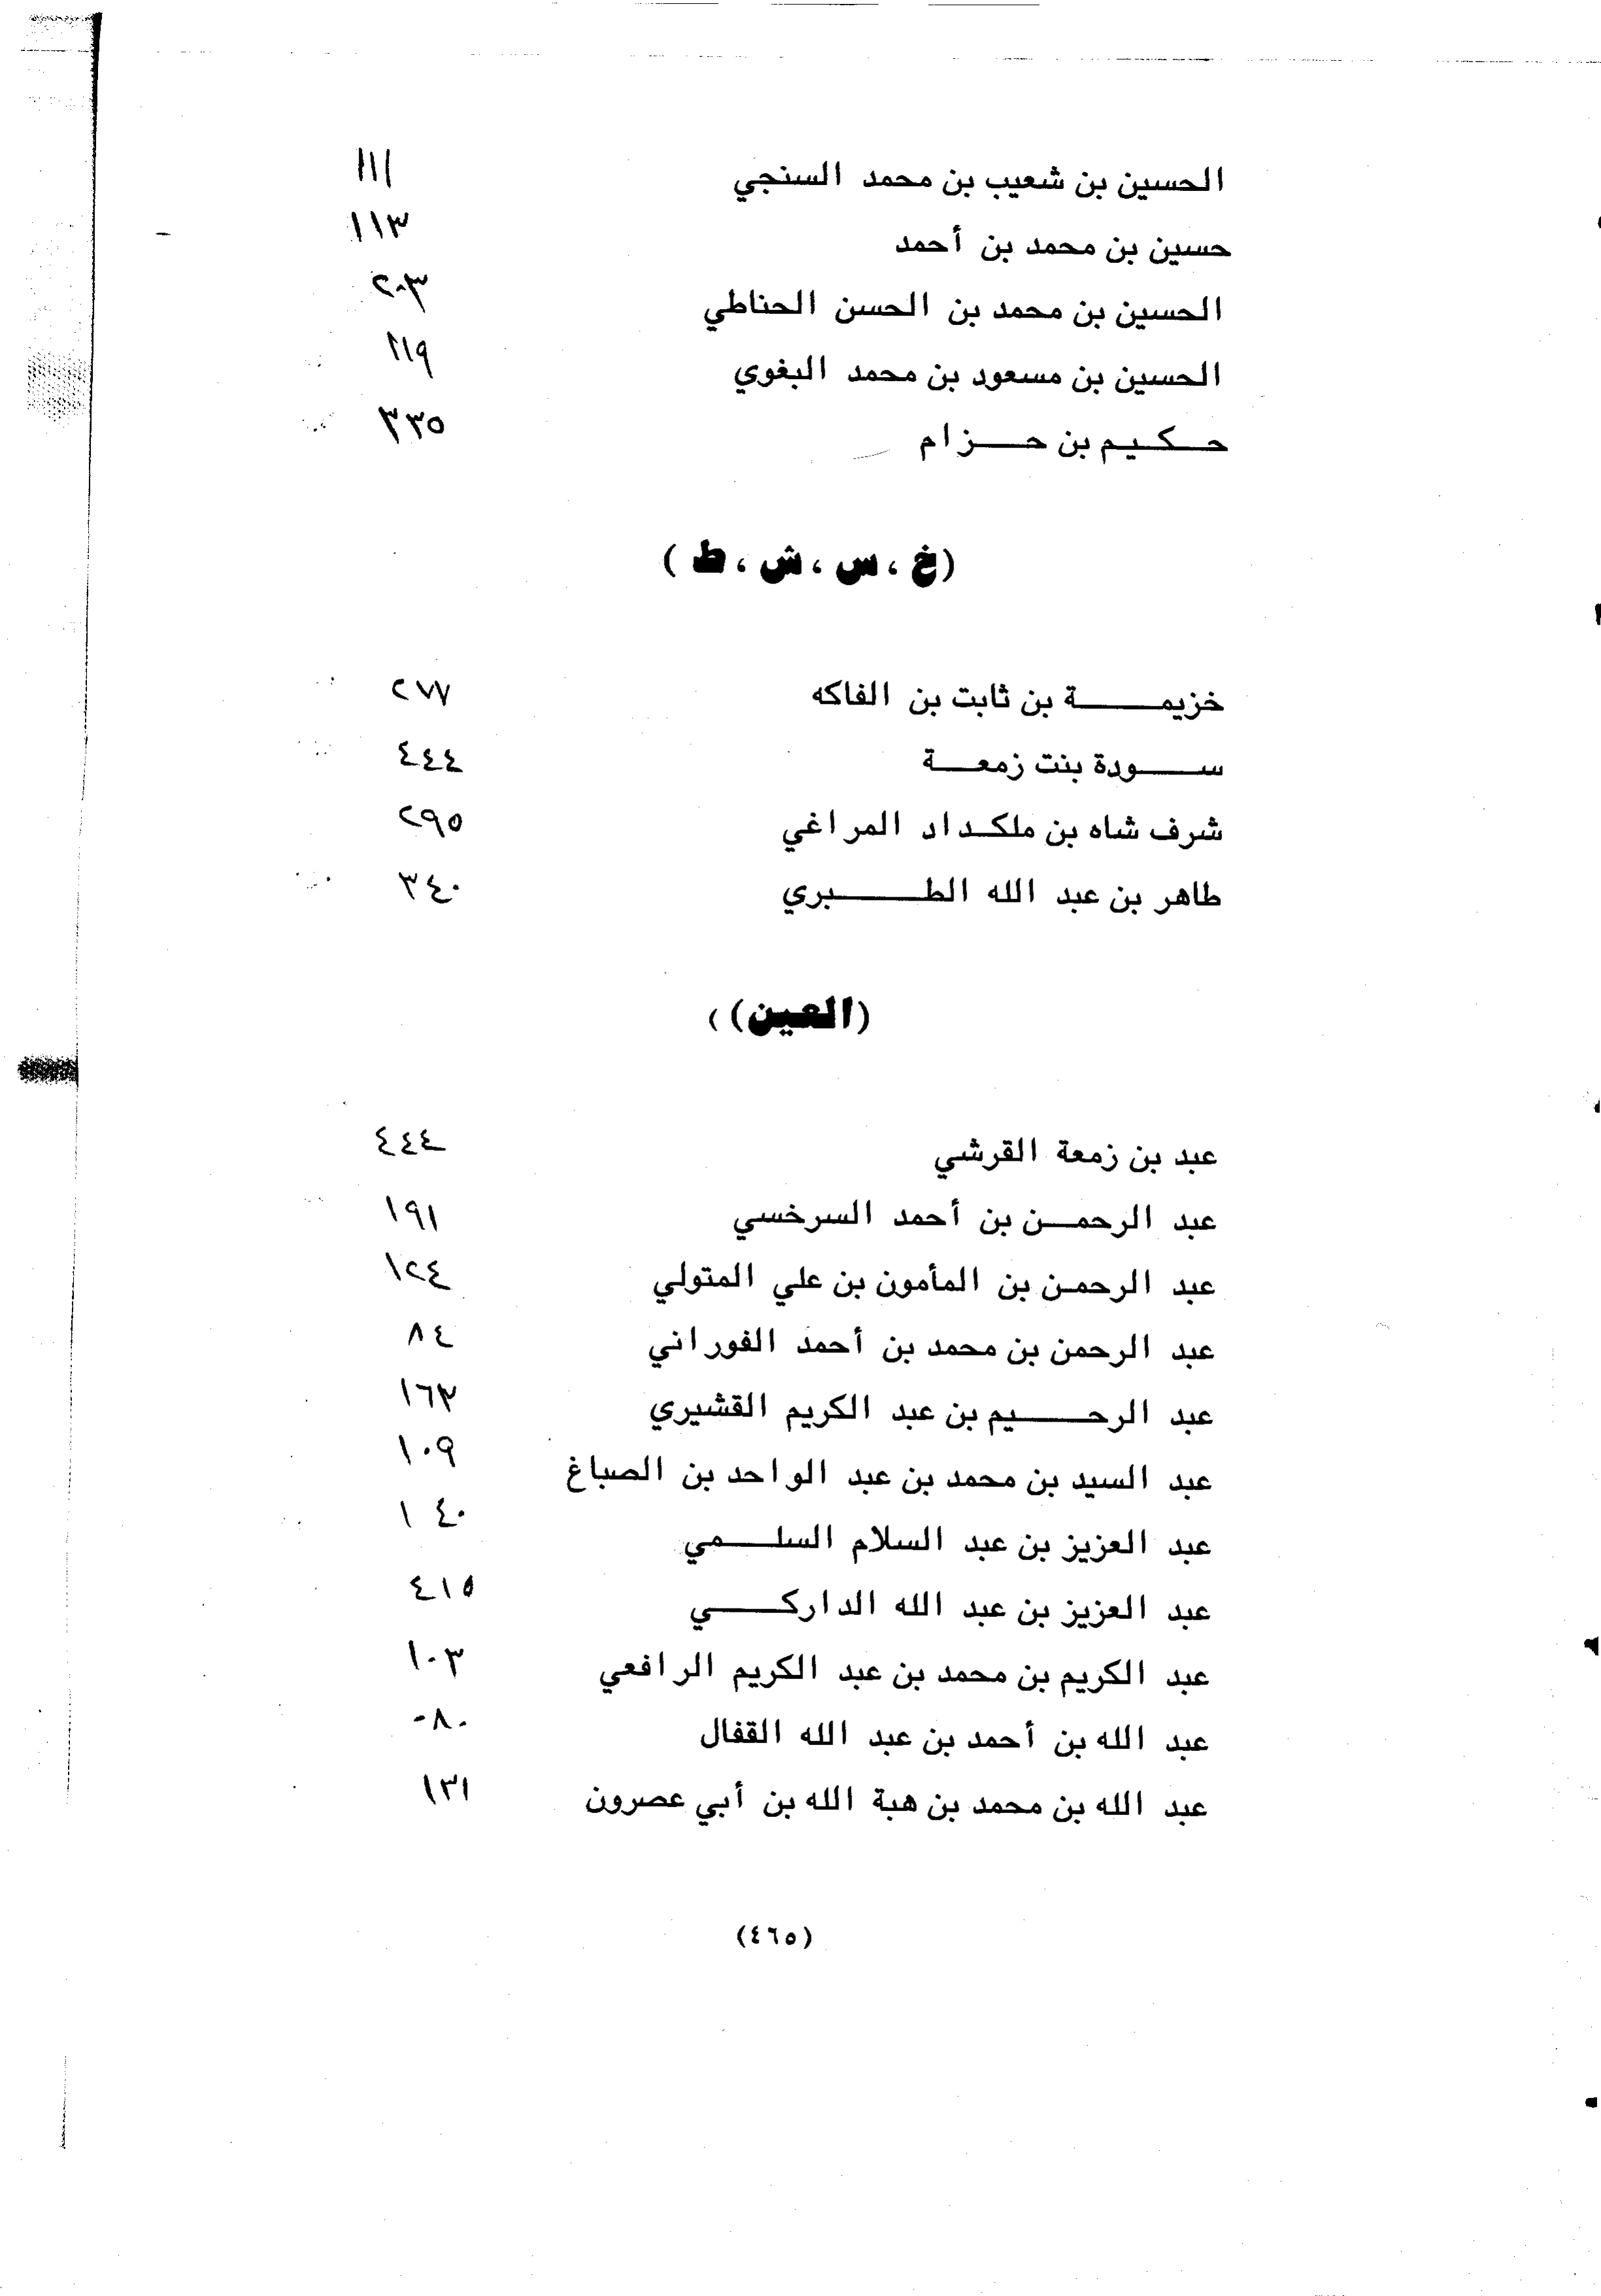 الحسين بن شعيب بن محمد السنجي ١١١
حسين بن محمد بن أحمد ١١٣
الحسين بن محمد بن الحسن الحناطي ٢٠٣
الحسين بن مسعود بن محمد البغوي ١١٩
حكيم بن حزام ٣٣٥
(خ ، س ، ش ، ط )
خزيمة بن ثابت بن الفاكه ٢٧٧
سودة بنت زمعة ٤٤٤
شرف شاه بن ملكداد المراغي ٢٩٥
طاهر بن عبد الله الطبري ٣٤٠
(العين) )
عبد بن زمعة القرشي ٤٤٤
عبد الرحمن بن أحمد السرخسي ١٩١
عبد الرحمن بن المأمون بن علي المتولي ١٢٤
عبد الرحمن بن محمد بن أحمد الفوراني ٨٤
عبد الرحيم بن عبد الكريم القشيري ١٦٣
عبد السيد بن محمد بن عبد الواحد بن الصباغ ١٠٩
عبد العزيز بن عبد السلام السلمي ١٤٠
عبد العزيز بن عبد الله الداركي ٤١٥
عبد الكريم بن محمد بن عبد الكريم الرافعي ١٠٣
عبد الله بن أحمد بن عبد الله القفال ٨٠
عبد الله بن محمد بن هبة الله بن أبي عصرون ١٣١
(٤٦٥)